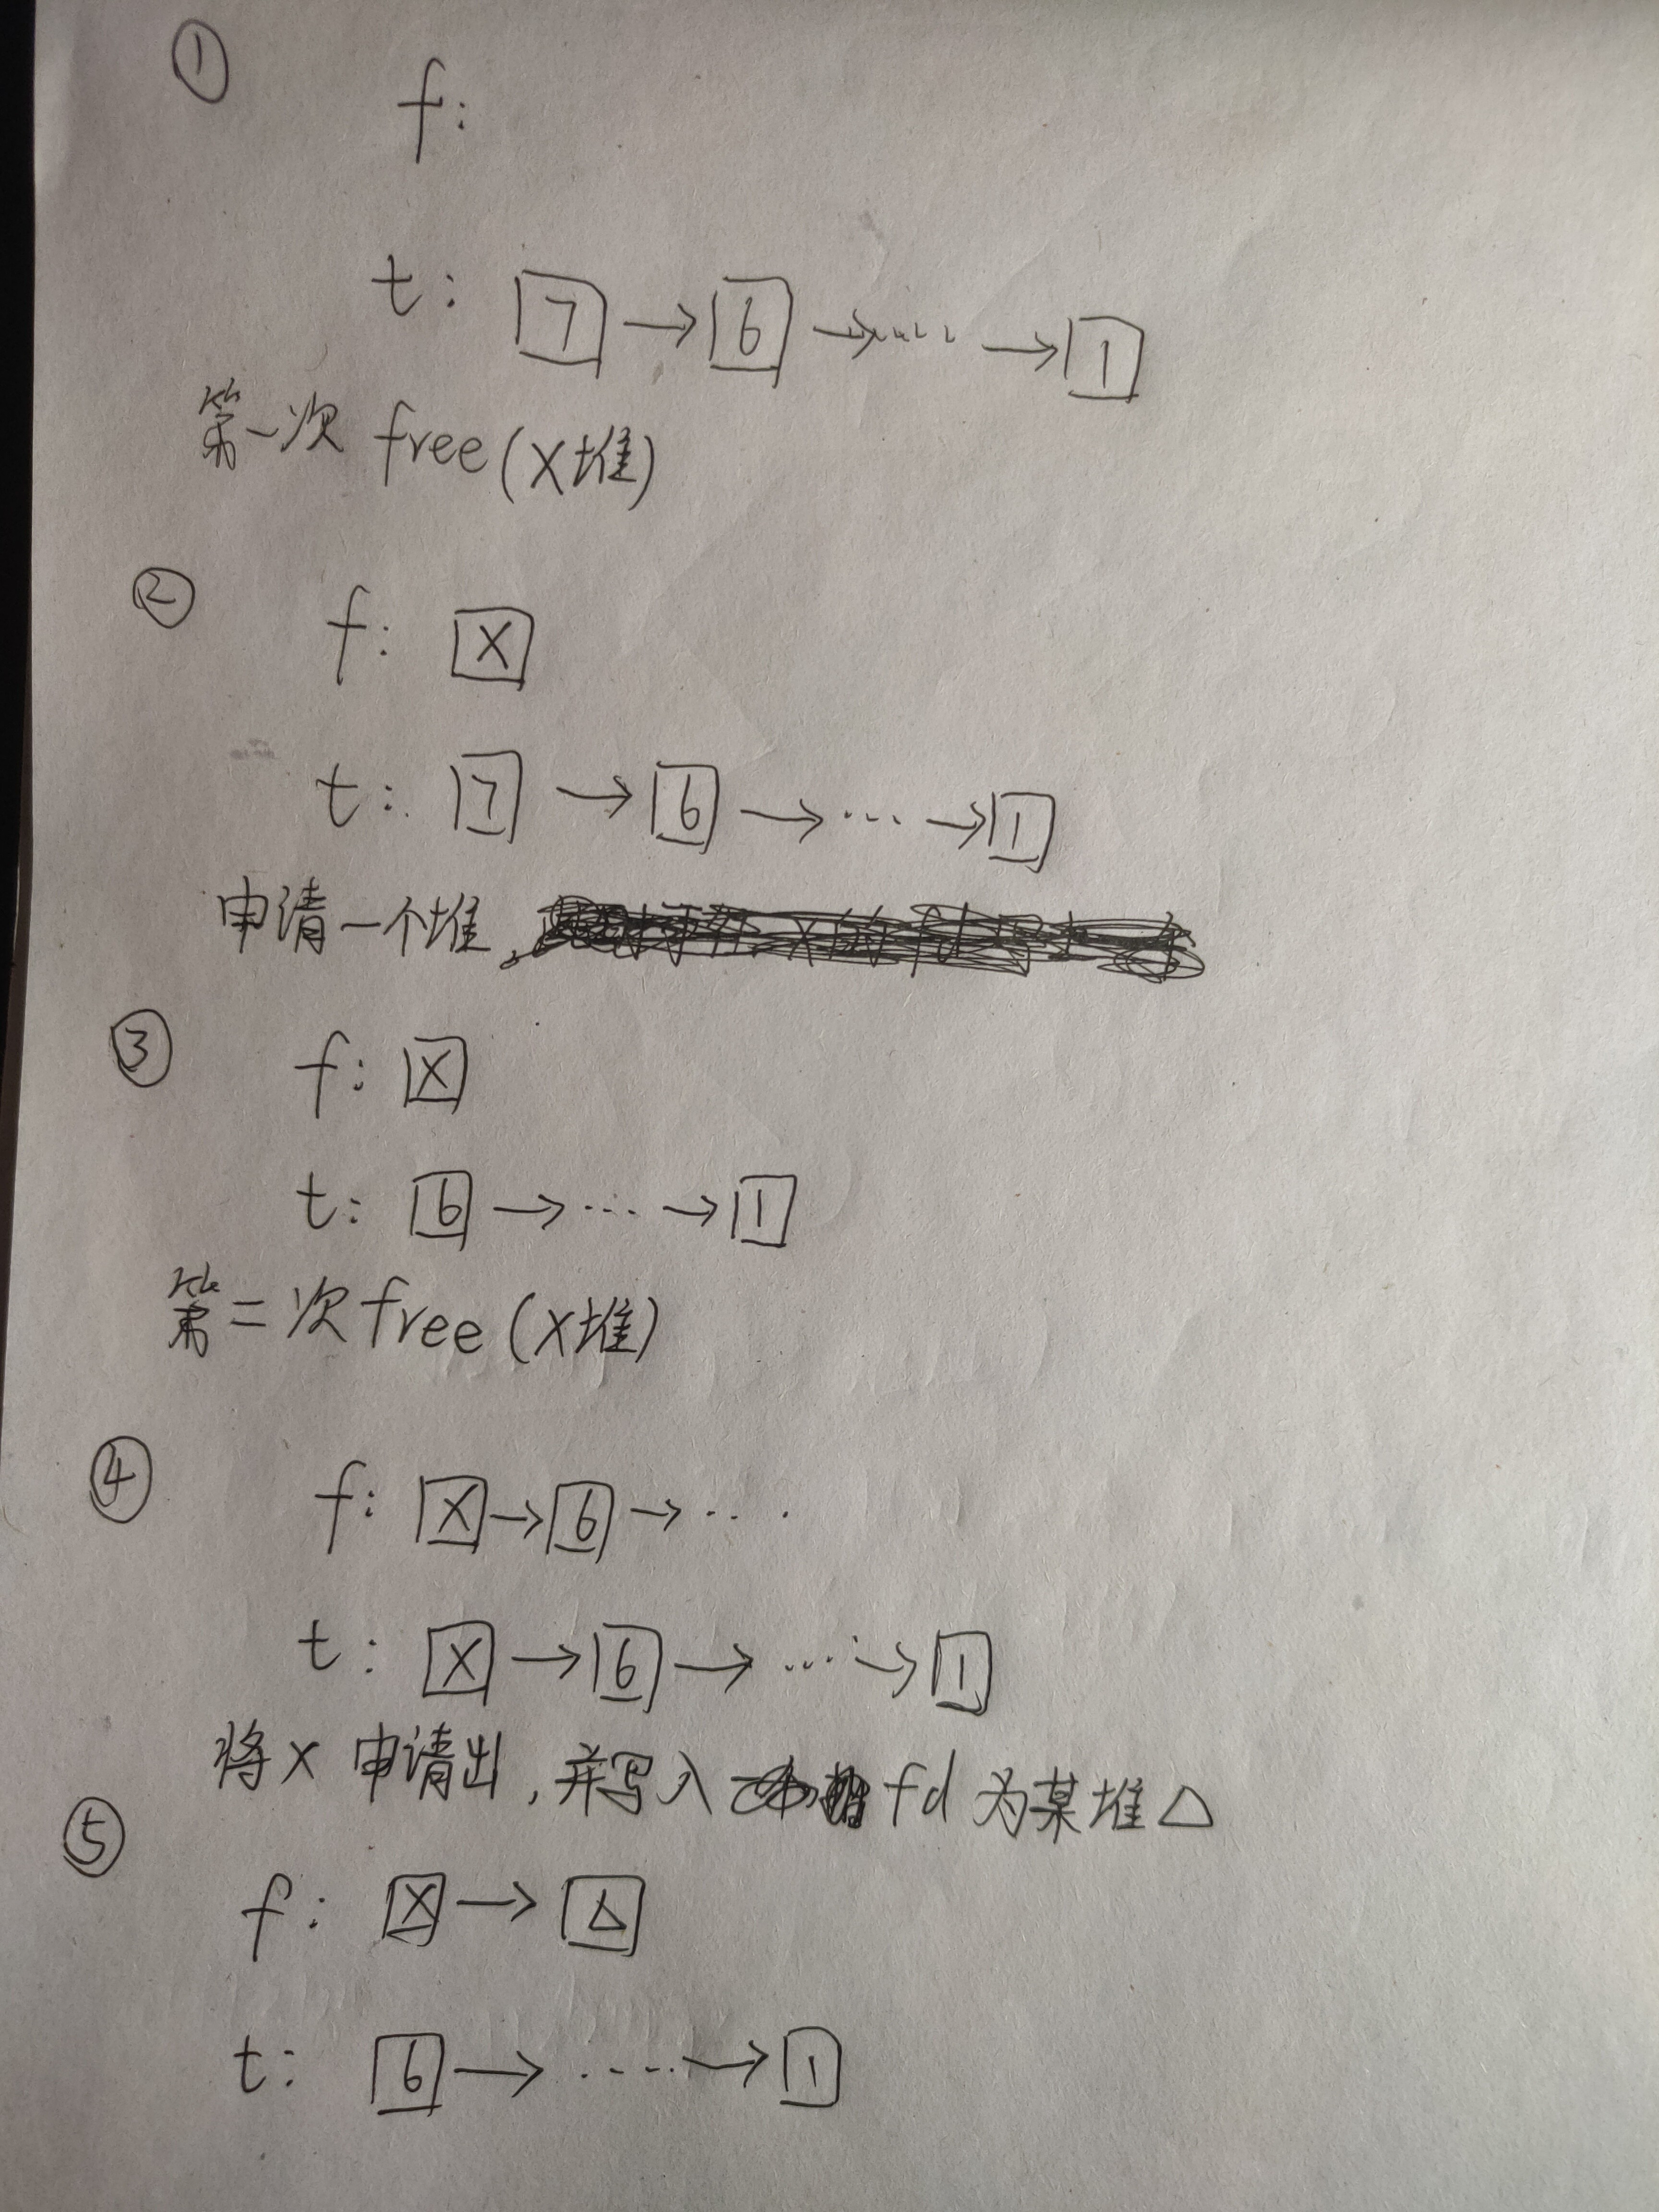 ①
f:
t: 7 → 6 → ····· → 1
第一次 free(X堆)
②
f: X
t: 7 → 6 → ··· → 1
申请一个堆,
③
f: X
t: 6 → ··· → 1
第二次 free(X堆)
④
f: X → 6 → ···
t: X → 6 → ···· → 1
将X 申请出, 并写入 fd 为某堆△
⑤
f: X → △
t: 6 → ····· → 1